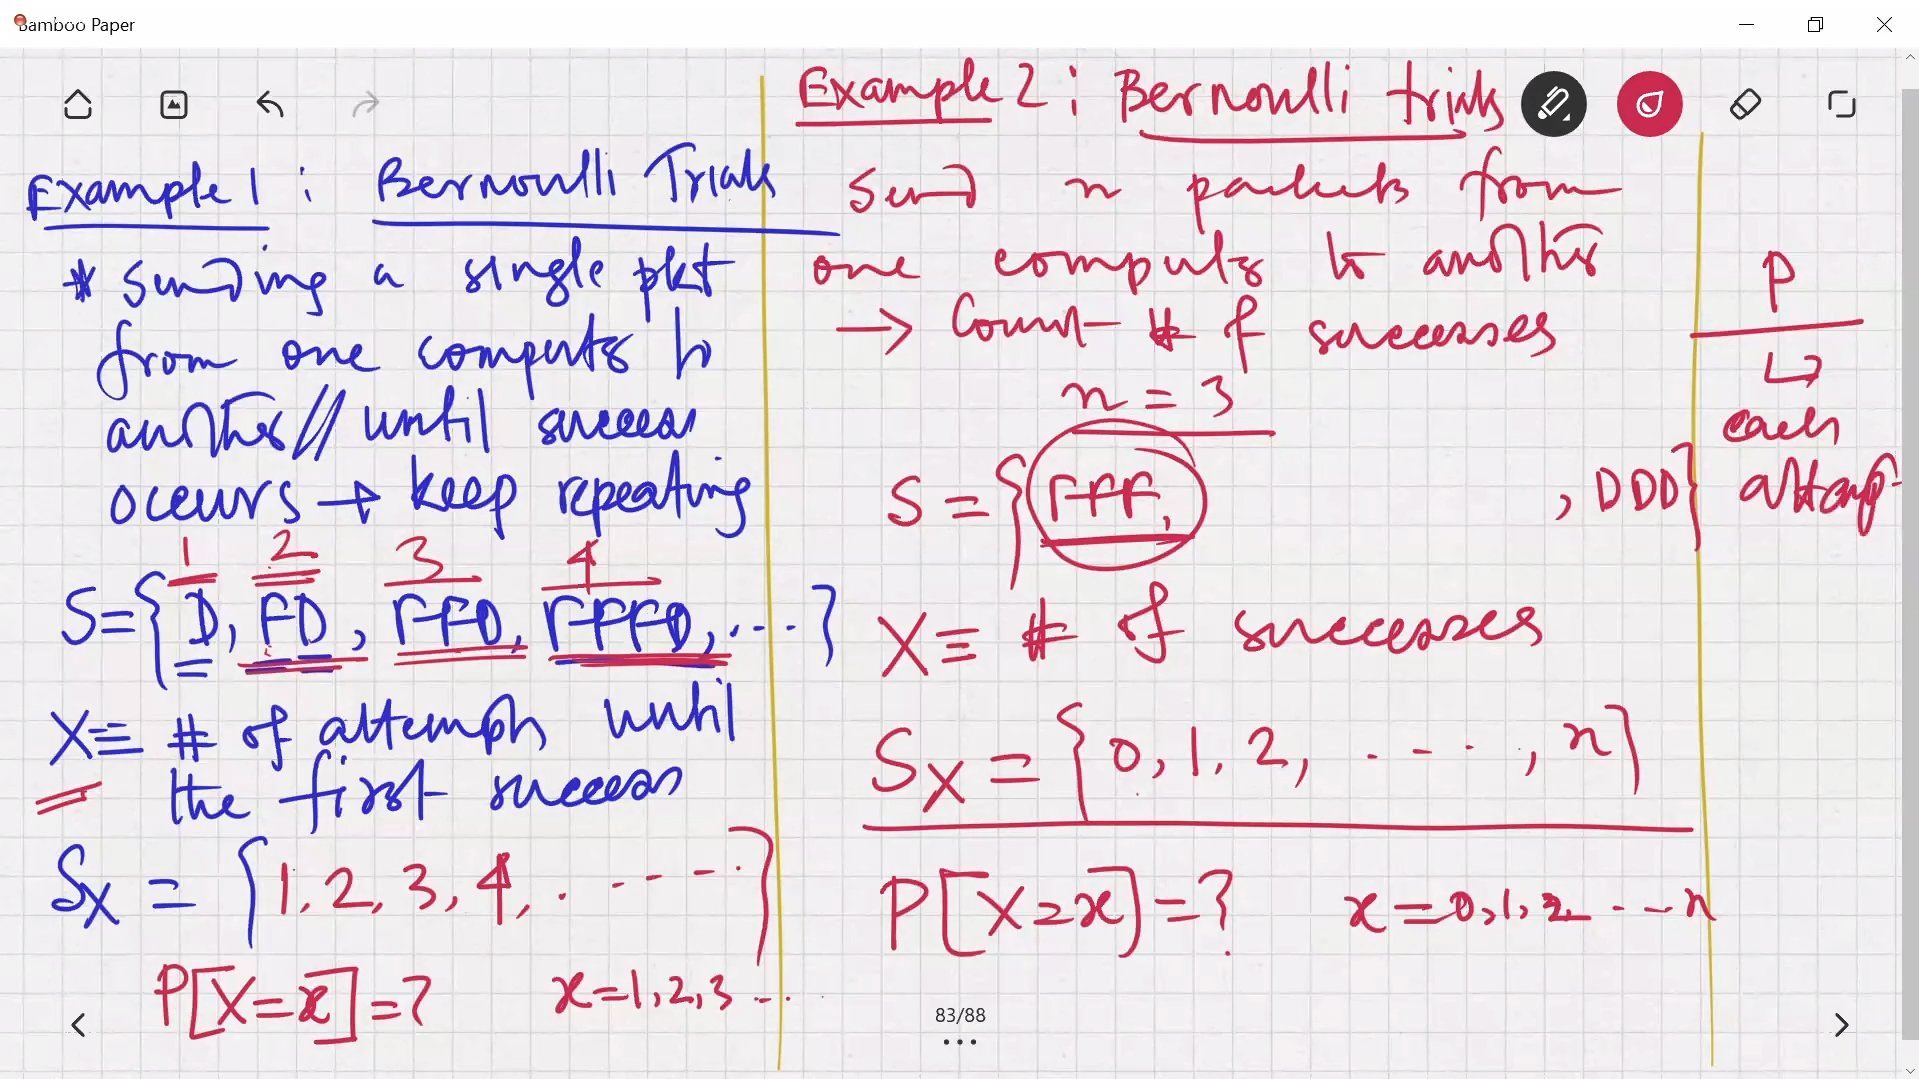 Bamboo Paper
Example 1 : Bernoulli Trials
* Sending a single pkt
from one computer to
another // until success
occurs → keep repeating
1 2 3 4
S = { D, FD, FFD, FFFD, ... }
X ≡ # of attempts until
the first success
S_X = { 1, 2, 3, 4, . ---- }
P[X=x] = ? x = 1, 2, 3 ...
Example 2 : Bernoulli trials
Send n packets from
one computer to another
→ Count # of successes
n = 3
S = { FFF, , DDD }
X ≡ # of successes
S_X = { 0, 1, 2, . --- , n }
P[X=x] = ? x = 0, 1, 2, ... n
P
↳
each
attempt
83/88